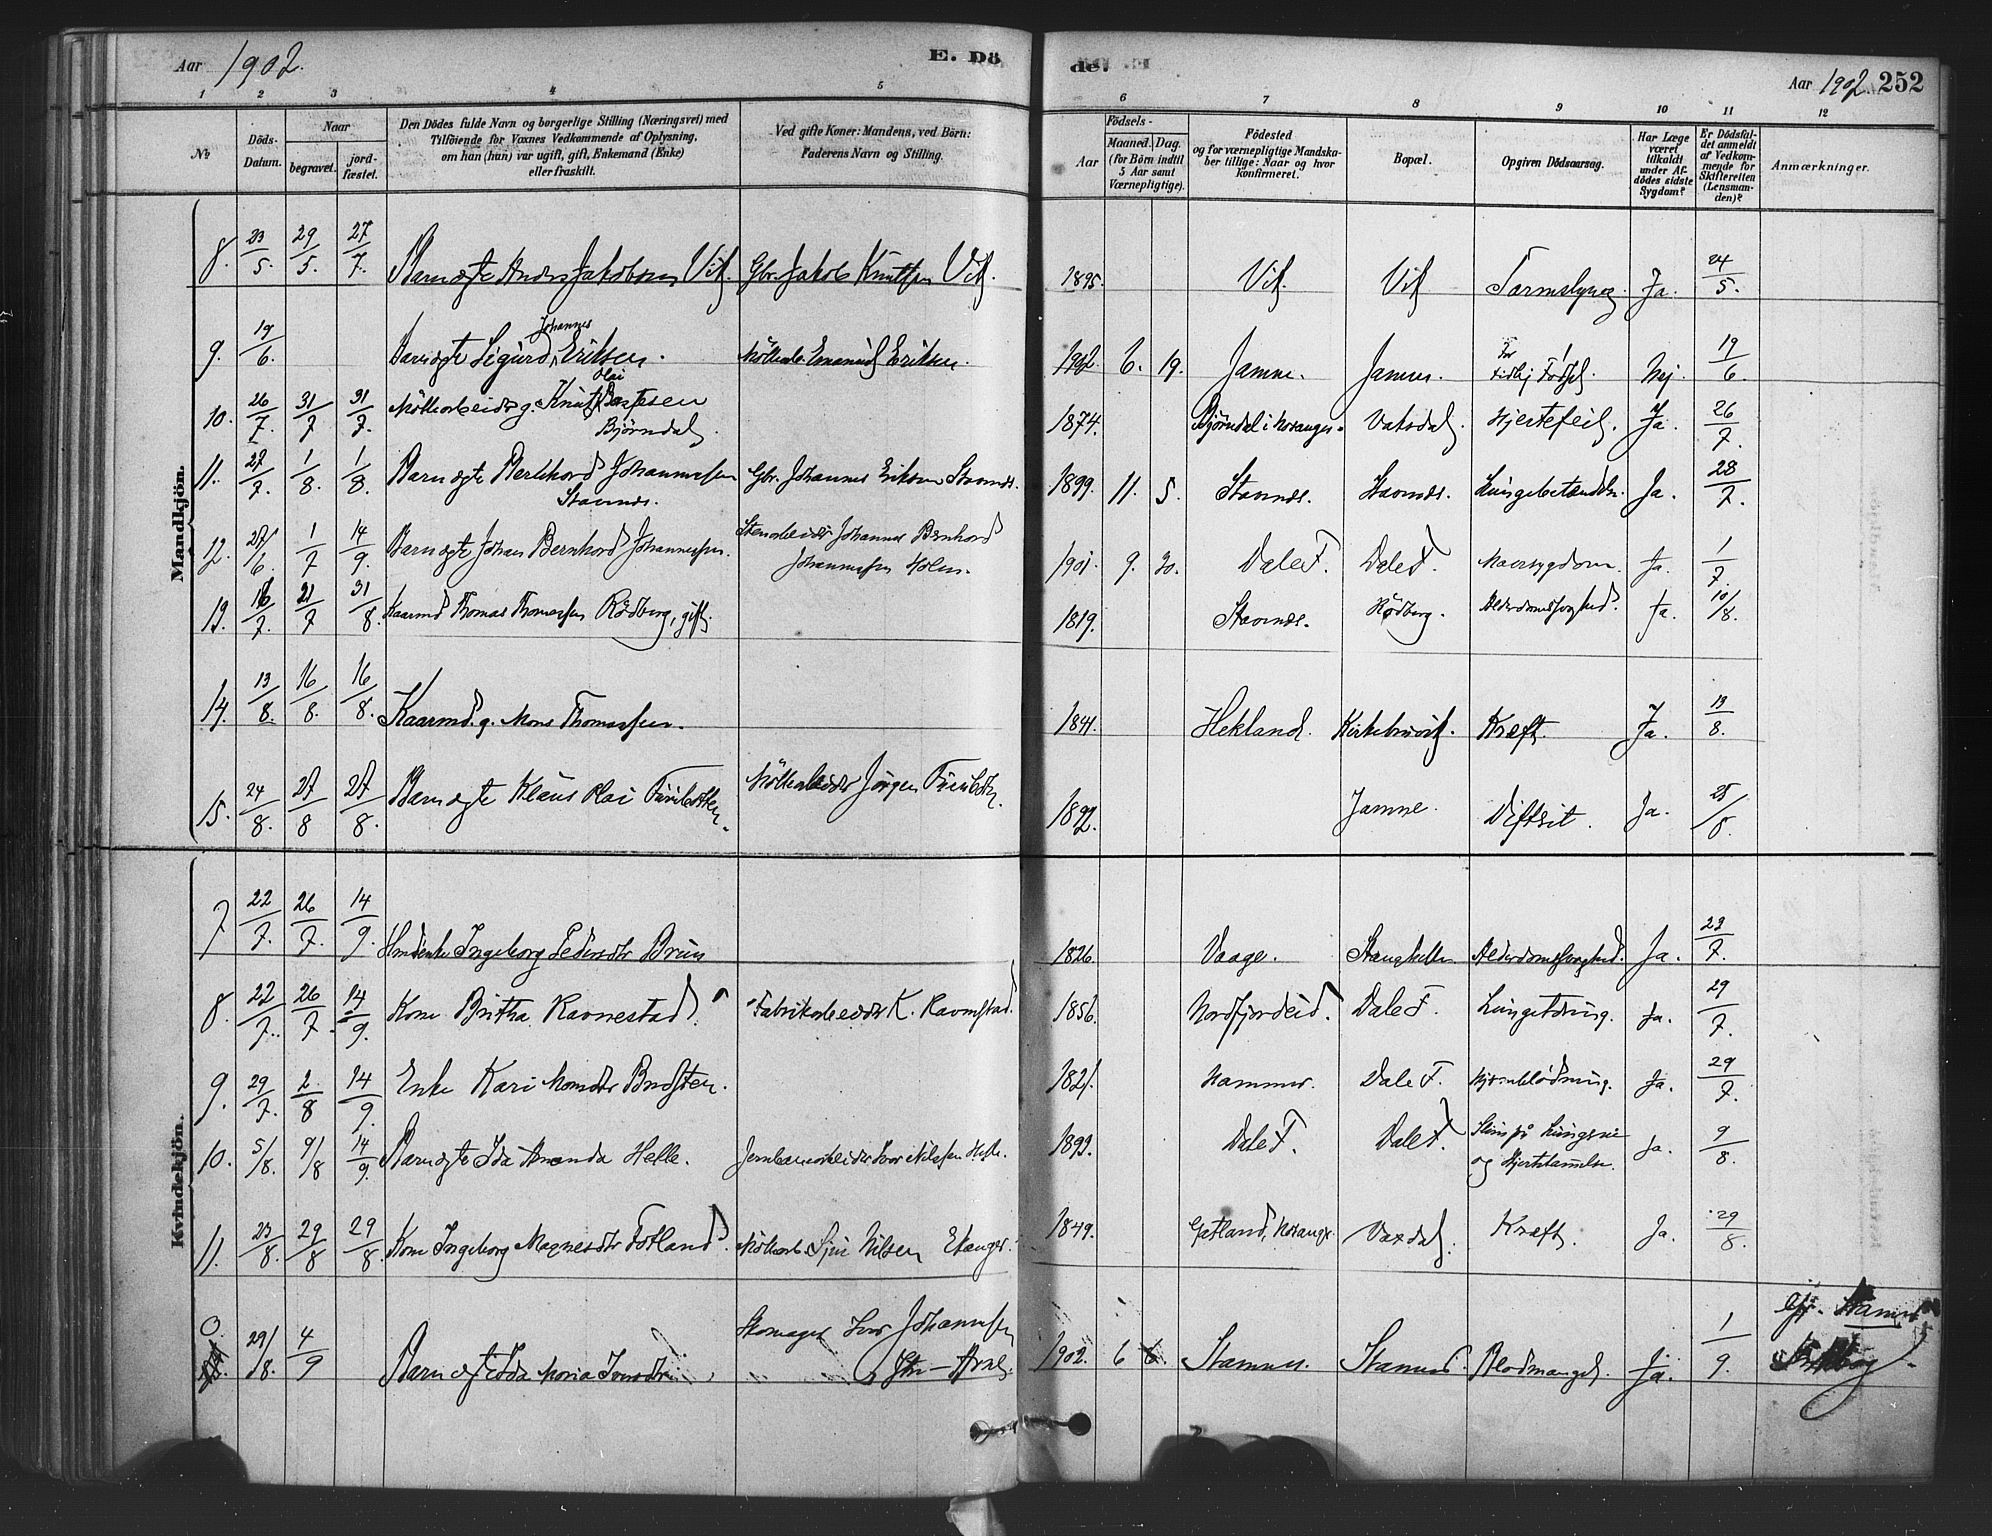 Aar 1902. E. Dö
de. Aar 1902. 252
1 2 3 4 5
6 7 8 9 10 11 12
No
Döds-
Datum.
Naar
begravet.
jord-
fæstet.
Den Dödes fulde Navn og borgerlige Stilling (Næringsvei) med
Tilföiende for Voxnes Vedkommende af Oplysning,
om han (hun) var ugift, gift, Enkemand (Enke)
eller fraskilt.
Ved gifte Koner: Mandens, ved Börn:
Faderens Navn og Stilling.
Födsels-
Aar
Maaned. Dag.
(for Börn indtil
5 Aar samt
Værnepligtige).
Födested
og for værnepligtige Mandska-
ber tillige: Naar og hvor
Konfirmeret.
Bopæl.
Opgiven Dödsaarsag.
Har Læge
været
tilkaldt
under Af-
dödes sidste
Sygdom?
Er Dödsfal-
det anmeldt
af Vedkom-
mende for
Skifteretten
(Lensman-
den)?
Anmærkninger.
Mandkjön.
8. 23/5. 29/5. 27/7. Barn ægte Anders Jakobsen Vik. Gbr. Jakob Knutsen Vik. 1895. Vik. Vik Tarmslyng. Ja. 24/5.
9. 19/6 Barn ægte Sigurd Johannes Eriksen. Möllearb. Emanuel Eriksen. 1902 6. 19. Jamne. Jamne. For tidlig Födsel. Nej. 19/6.
10. 26/7. 31/7 31/7. Möllearbeider g. Knut Olai
Björndal. 1874. Björndal i Mosanger. Vaksdal. Hjertefeil. Ja. 26/7.
11. 27/7. 1/8. 1/8. Barn ægte Johannessen
Stavnes. Gbr. Johannes Eriksen Stavnes. 1899. 11. 5. Stavnes. Stavnes. Lungebetændelse. Ja. 28/7.
12. 27/6 1/7 14/9. Barn ægte Johan Bernhard Johannessen. Stenarbeider Johannes Bernhard
Johannessen Holm. 1901. 9. 30. Dale F. Dale F. Mavesygdom. Ja. 1/7.
13. 16/7. 21/7 31/8. Kaarmd Thomas Thomassen Rödberg, gift. 1819. Stavnes. Rödberg. Alderdomssvaghed. Ja. 10/8.
14. 13/8. 16/8. 16/8. Kaarmd. g. Mons Thomassen. 1841. Hekland. Kirkebruvik. Kræft. Ja. 13/8.
15. 24/8. 27/8 27/8. Barn ægte Klaus Olai Möllearbeider Jörgen 1892. Jamne. Difterit. Ja. 25/8.
Kvindekjön.
7 22/7. 26/7. 14/9. Ingeborg Pedersdtr Bruu 1826. Vaage. Stanghelle. Alderdomssvaghed. Ja. 23/7.
8. 22/7. 26/7. 14/9. Kone Britha Ravnestad. Fabrikarbeider K. Ravnestad. 1856. Nordfjordeid. Dale F. Lungetæring. Ja. 29/7.
9. 29/7. 2/8 14/9. Enke Kari Monsdtr 1821. Hammer. Dale F. Hjerneblödning. Ja. 29/7.
10. 5/8. 9/8 14/9. Barn ægte Ida Amanda Helle. Jernbanearbeider Nilssen Helle. 1899. Dale F. Dale F. Slim på Lungerne
og Hjertelammelse. Ja. 9/8.
11. 23/8. 29/8 29/8. Kone Ingeborg Magnesdtr Fotland. Möllearb. Nilsen Ekanger. 1849. Mosanger. Vaxdal. Kræft. Ja. 29/8.
0. 29/8. 4/9 Barn ægte Ida Maria Skomager Johannessen
1902. 6 Stamnes. Stamnes. Blodmangel. Ja. 1/9.